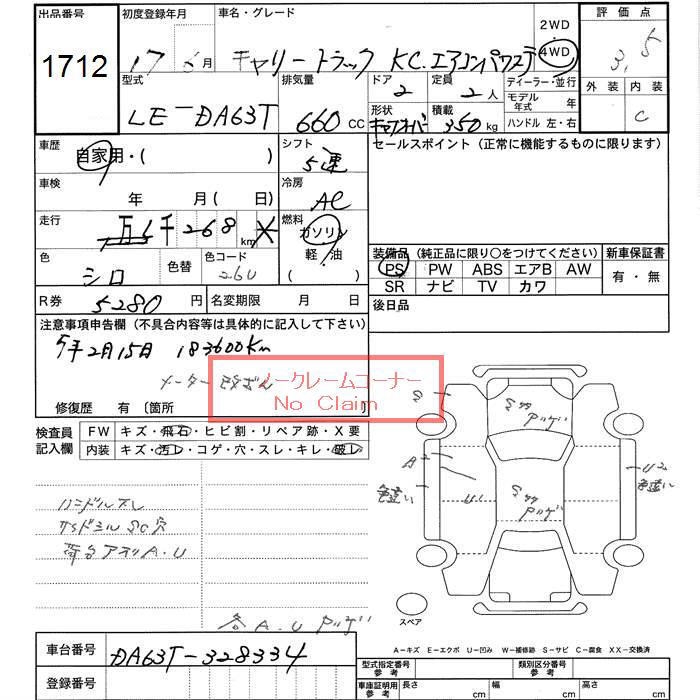 出品番号 初度登録年月 車名・グレード 2WD 評価点
1712 17 5月 キャリートラック KC.エアコンパワステ 4WD 3.5
型式 排気量 ドア 定員 ディーラー・並行 外装 内装
LE-DA63T 660 CC 2 2人 モデル年式 年 C
形状 積載 ハンドル 左・右
キャブオーバー 350 kg
車歴 シフト セールスポイント (正常に機能するものに限ります)
自家用・( ) 5速
車検 冷房
年 月( 日) AC
走行 燃料
万 千 268 km ガソリン
色 色替 色コード 軽・油
シロ 26U ( )
装備品 (純正品に限り○をつけてください) 新車保証書
PS PW ABS エアB AW 有・無
SR ナビ TV カワ
R券 5280 円 名変期限 月 日 後日品
注意事項申告欄 (不具合内容等は具体的に記入して下さい)
5年2月15日 183600Km
メーター改ざん
ノークレームコーナー
No Claim
修復歴 有〔箇所
検査員記入欄 FW キズ・飛石・ヒビ割・リペア跡・X要
内装 キズ・汚レ・コゲ・穴・スレ・キレ・破レ
ハンドルスレ
荷台アオリA.U
各A.U
A2
色違い
U1
U2
色違い
スペア
A-キズ E-エクボ U-凹み W-補修跡 S-サビ C-腐食 XX-交換済
車台番号 DA63T-328334
登録番号
型式指定番号 参考 類別区分番号 参考
車庫証明用 参考 長さ cm 幅 cm 高さ cm